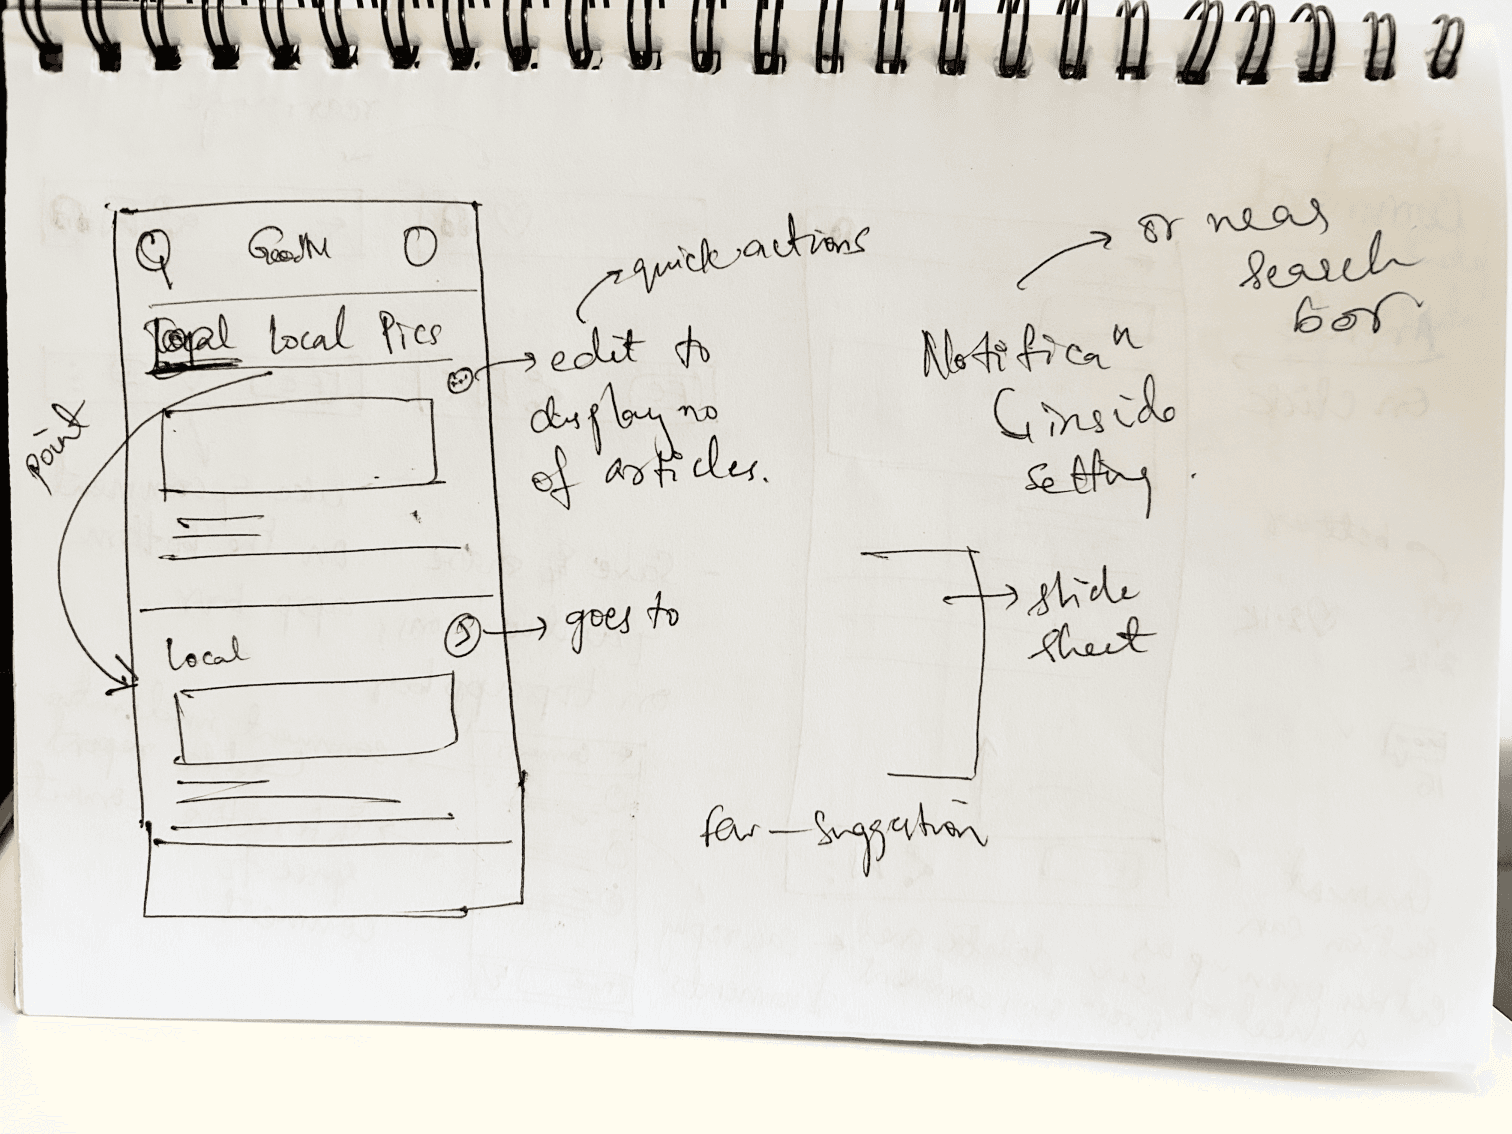 GoodM
Local Pics
Point
Local
quick actions
edit to
display no
of articles.
goes to
or near
search
bar
Notificaⁿ
inside
setting.
slide
sheet
few — suggestion